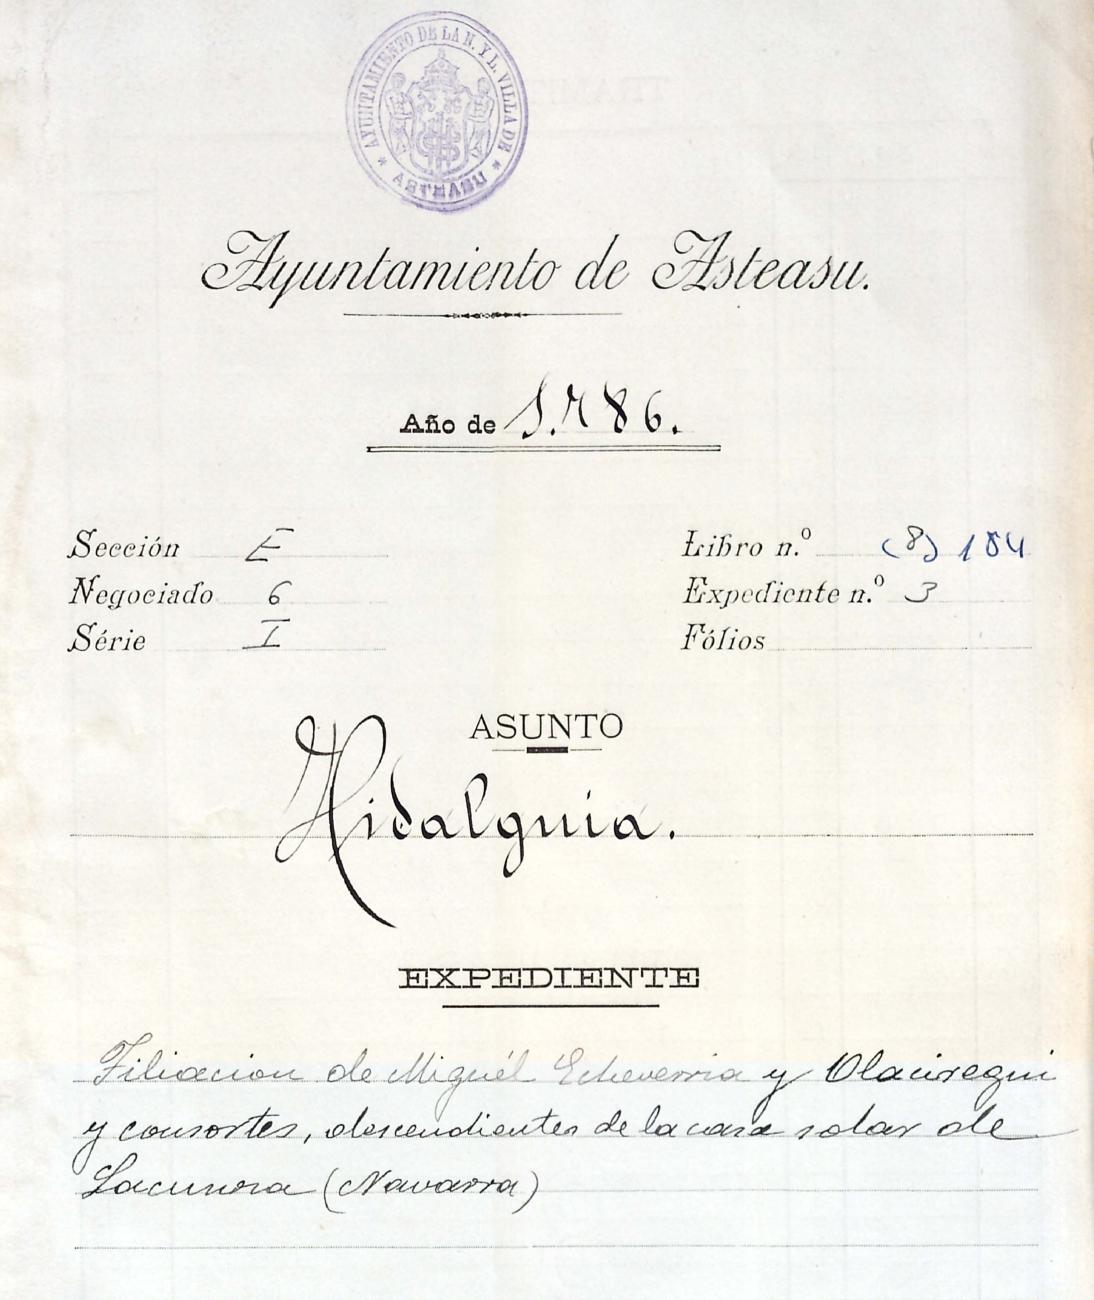 AYUNTAMIENTO DE LA N. Y L. VILLA DE
* ASTEASU *
Ayuntamiento de Asteasu.
Año de 1.786.
Sección E
Negociado 6
Série I
Libro n.º (8) 184
Expediente n.º 3
Fólios
ASUNTO
Hidalguia.
EXPEDIENTE
Filiacion de Miguél Echeverria y Olaciregui
y consortes, descendientes de la casa solar de
Lacunza (Navarra)